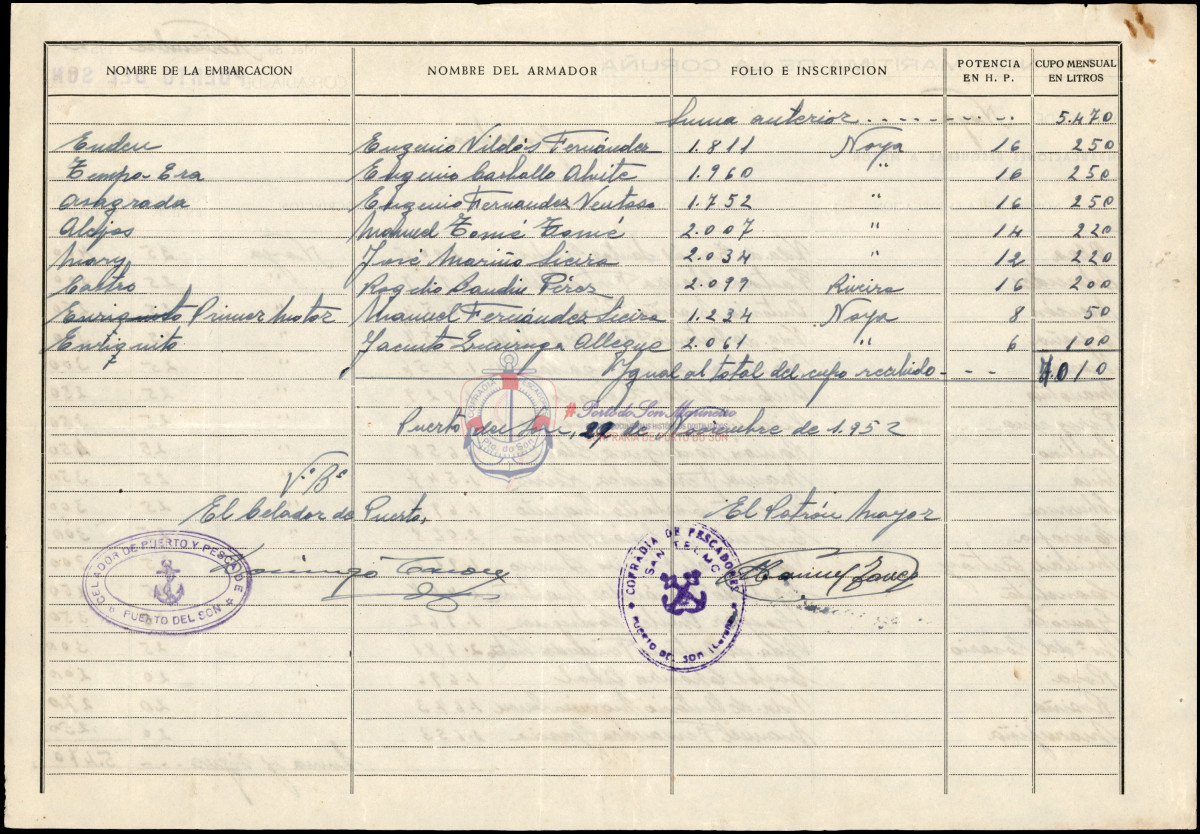 NOMBRE DE LA EMBARCACION NOMBRE DEL ARMADOR FOLIO E INSCRIPCION POTENCIA EN H. P. CUPO MENSUAL EN LITROS
Suma anterior 5.470
Enden Eugenio Fernández 1.811 Noya 16 250
Tempo-Era Eugenio Carballo Ahite 1.960 " 16 250
Eugenio Fernandez Ventoso 1.752 " 16 250
Manuel Tomé Tomé 2.007 " 14 220
Mary José Mariño Sieira 2.034 " 12 220
Castro Rogelio Pérez 2.099 Riveira 16 200
Enriquito Primer Motor Manuel Fernández Sieira 1.234 Noya 8 50
Enriquito Jacinto 2.061 " 6 100
Ygual al total del cupo recibido - - - 7.010
#Porto do Son Marineiro
COFRADIA DE PORTO DO SON
Puerto del Son, 29 de Noviembre de 1.952
Vº Bº
El Celador de Puerto, El Patrón Mayor
CELADOR DE PUERTO Y PESCA DE
PUERTO DEL SON
COFRADIA DE PESCADORES
SAN TELMO
PUERTO DEL SON